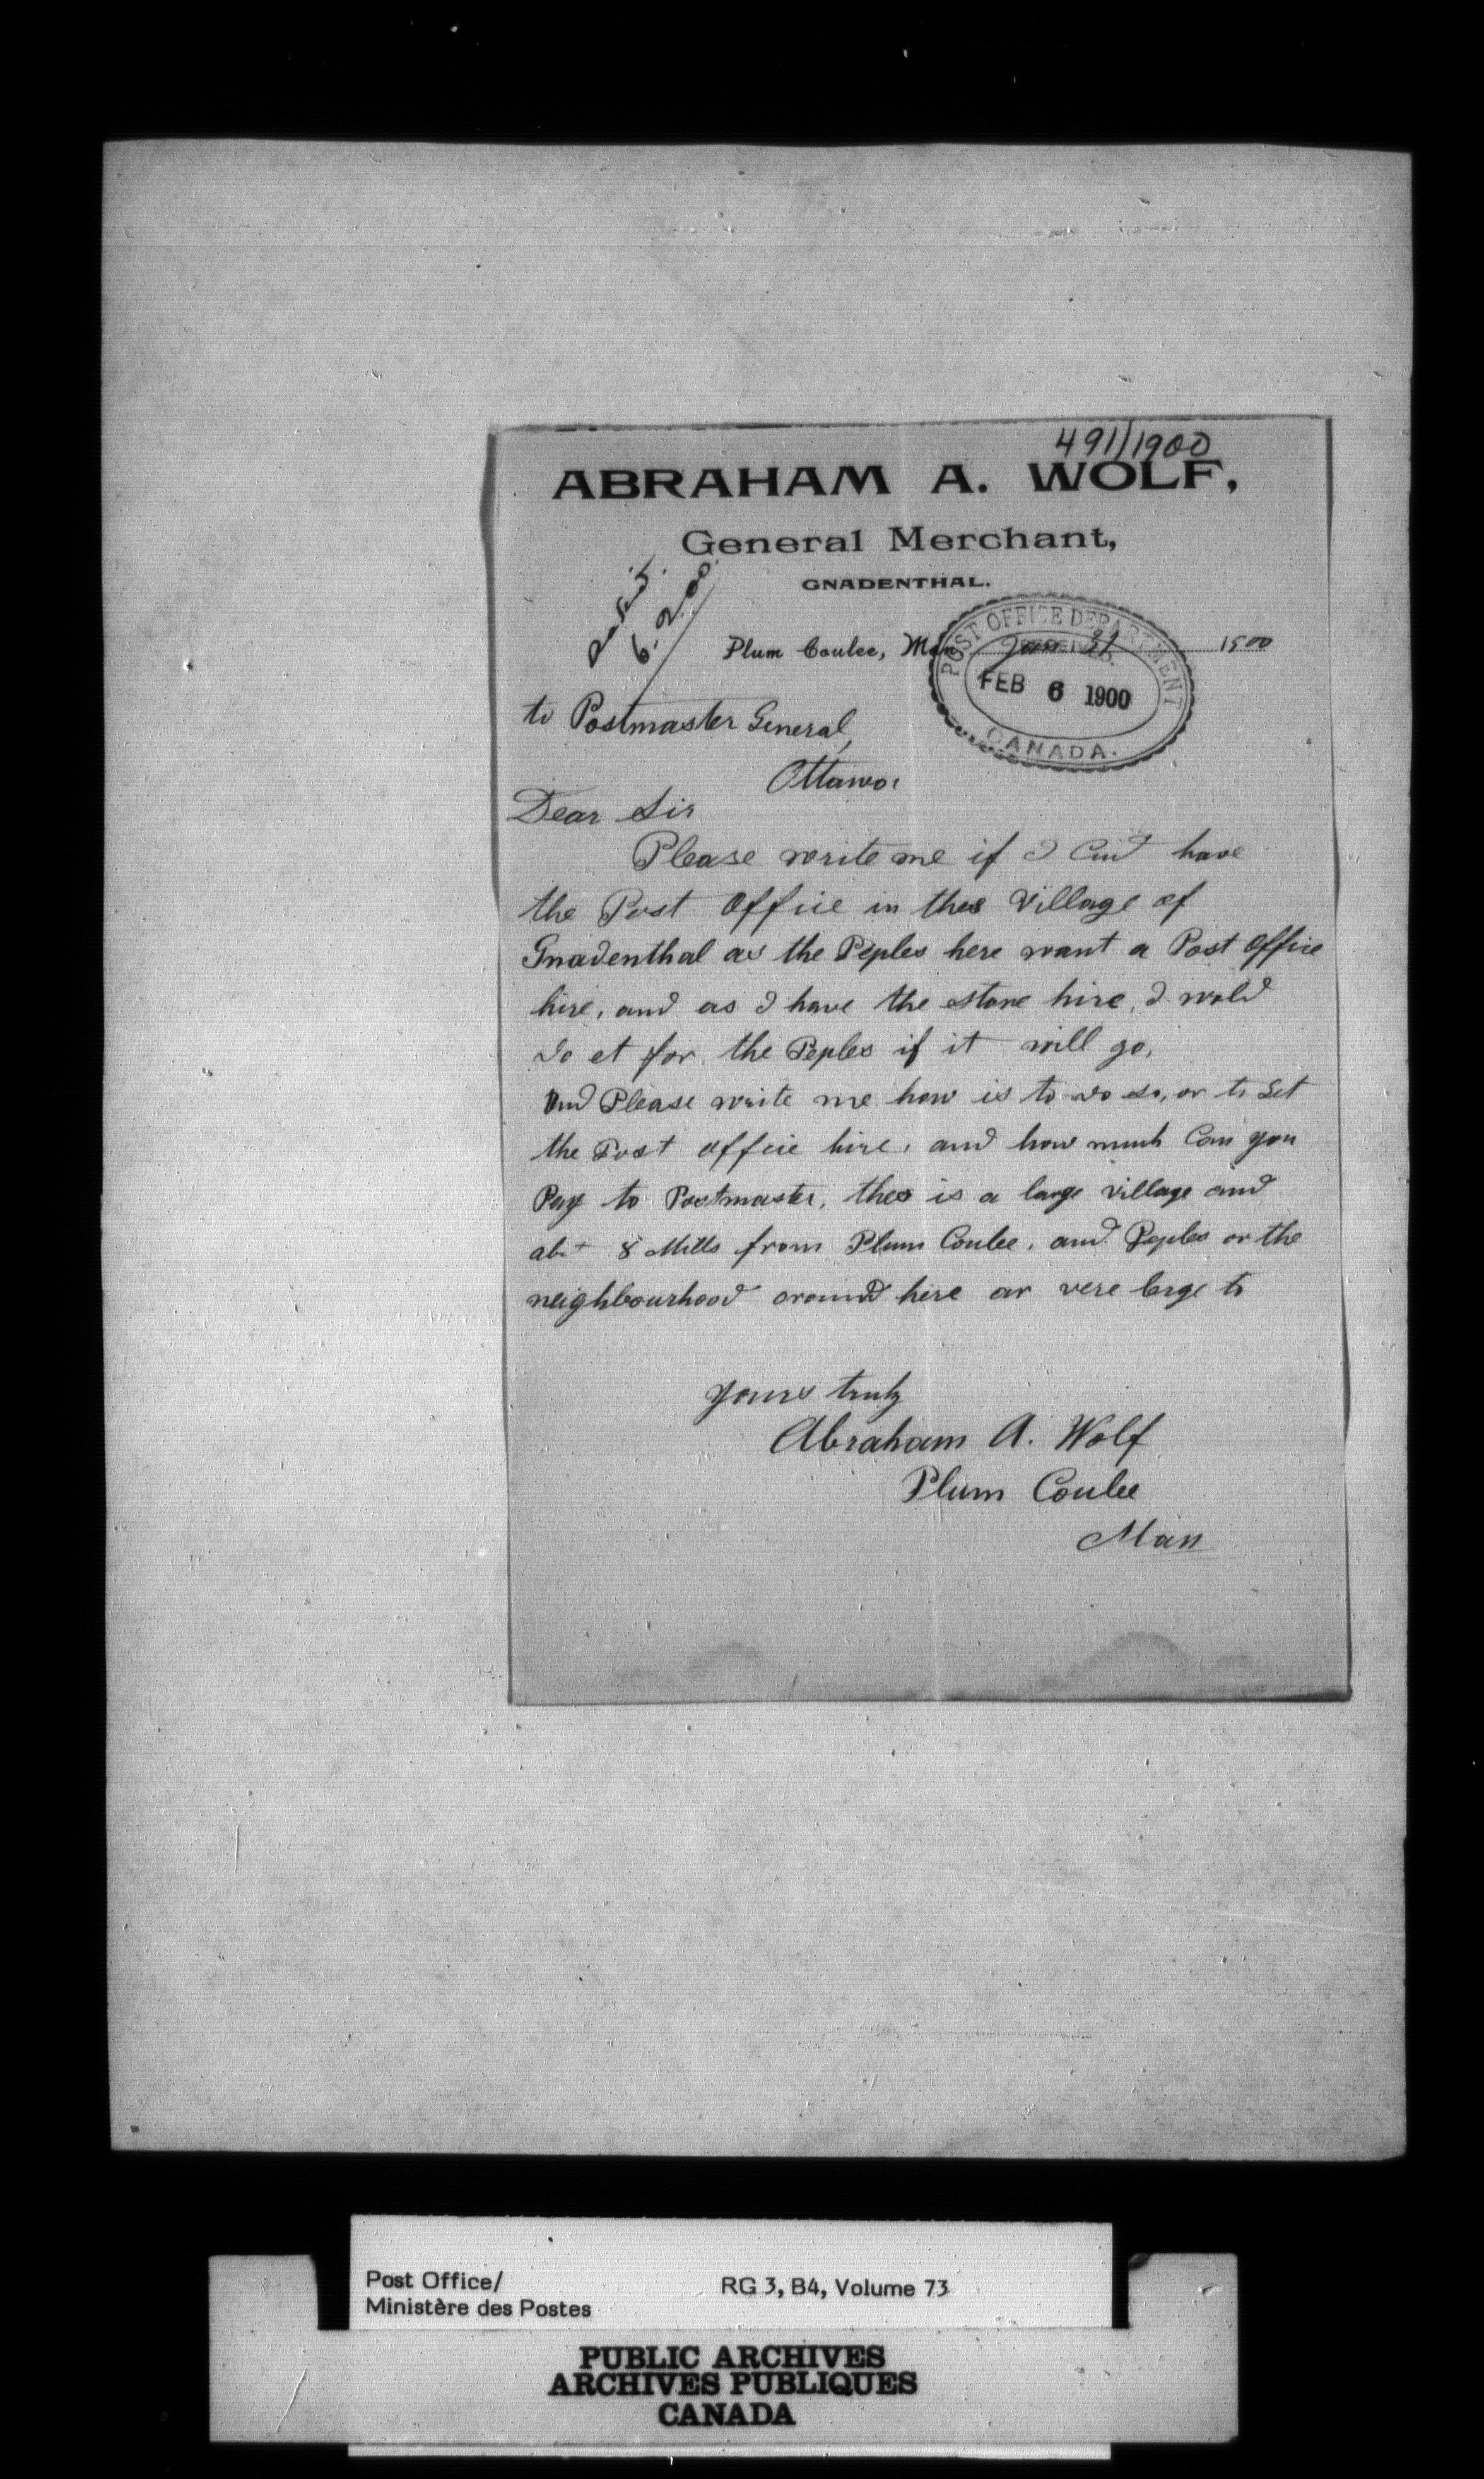 491/1900
ABRAHAM A. WOLF,
General Merchant,
GNADENTHAL.
6.2.00
Plum Coulee, Man Jan 31 1900
POST OFFICE DEPARTMENT
RECEIVED.
FEB 6 1900
CANADA.
to Postmaster General,
Ottawa
Dear Sir
Please write me if I have
the Post Office in thes Village of
Gnadenthal as the Peples here want a Post Office
hire, and as I have the store hire, I wold
do et for the Peples if it will go,
And Please write me how is to do so, or to Set
the Post office hire, and how much Can you
Pay to Postmaster, thes is a large village and
abt 8 Mills from Plum Coulee, and Peples or the
neighbourhood around here ar vere large to
Yours truly
Abraham A. Wolf
Plum Coulee
Man
Post Office/
Ministère des Postes
RG 3, B4, Volume 73
PUBLIC ARCHIVES
ARCHIVES PUBLIQUES
CANADA